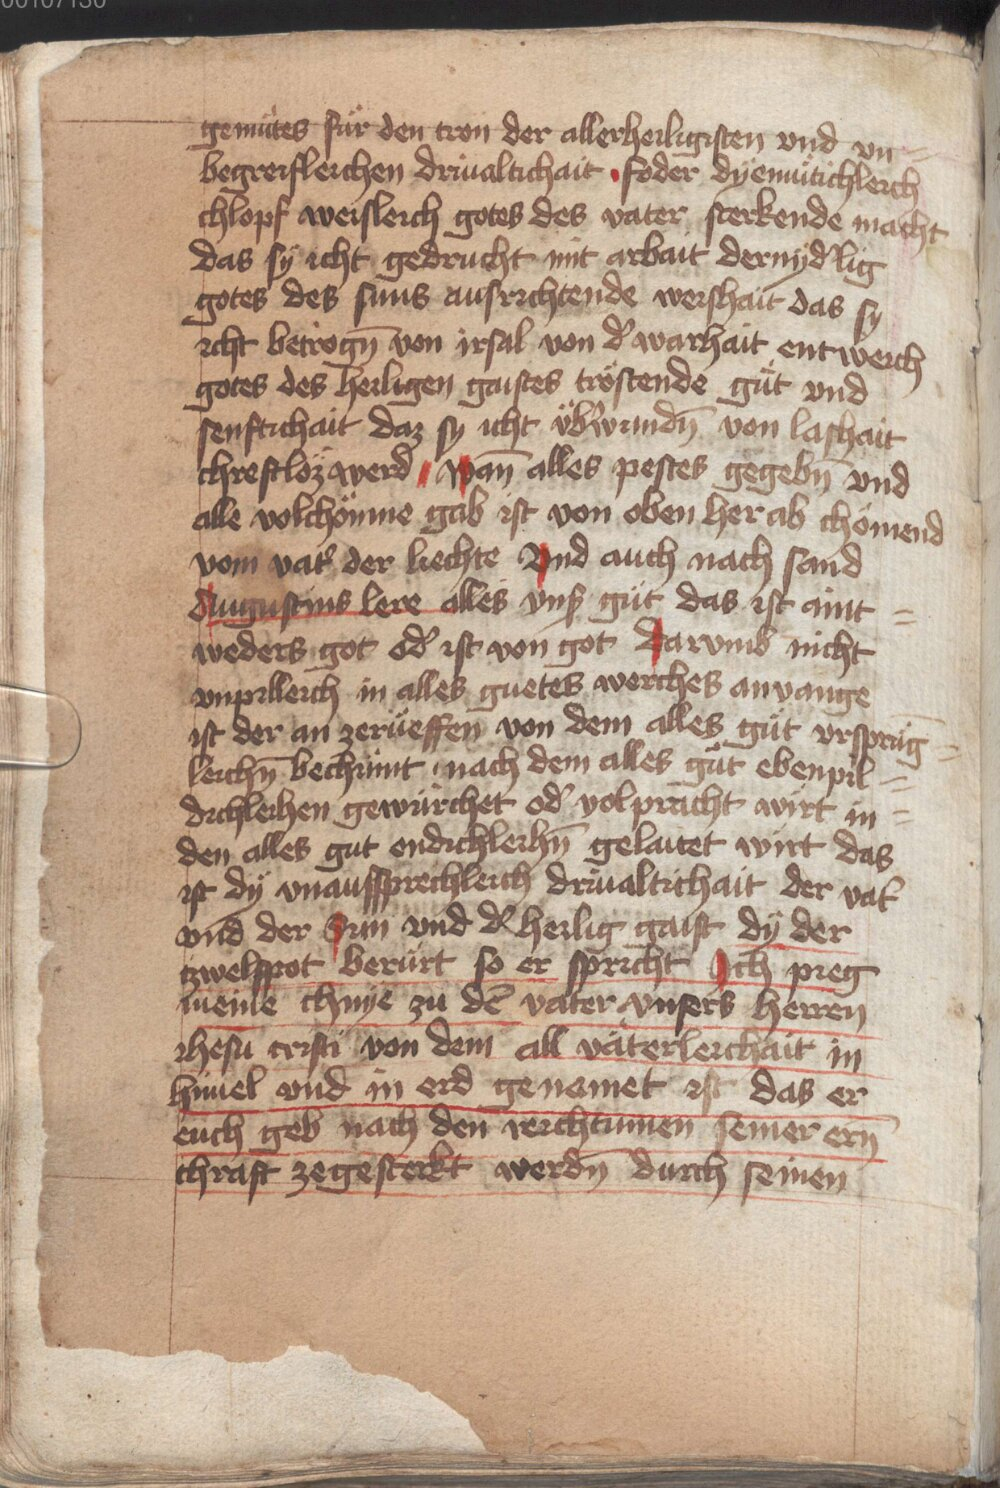 00107130
gemütes für den tron der allerheiligisten vnd vn
begreifleichen driualtichait . foder dyemütichleich
chlopf weisleich gotes des vater sterkende macht
das sy icht gedrucht mit arbait dernyd͛lig
gotes des suns ausrichtende weishait das sy
icht betrogn̄ von irsal von d͛ warhait entweich
gotes des heiligen gaistes tröstende güt vnd
senftichait daz sy icht vb͛wundn̄ von lashait
chreftloz werd wan̄ alles pestes gegebn̄ vnd
alle volchömne gab ist von oben herab chömend
vom vat͛ der liechte Vnd auch nach sand
Augustins lere alles vns͛ güt das ist aint =
weders got od͛ ist von got Darvmb nicht
vnpilleich in alles guetes werches anvange
ist der an zerüeffen von dem alles güt vrsprüḡ =
leichn̄ bechumt nach dem alles güt ebenpil =
dichleihen gewürchet od͛ volpracht wirt in =
den alles gut endichleihn̄ gelaitet wirt das
ist dy vnaussprechleich driualtichait der vat͛
vnd der Sun vnd d͛ heilig gaist dy der
tzwelfpot berürt so er spricht Ich pieg
meine chnye zu dē vater vnsers herren
ihesu cristi von dem all väterleichait in
himel vnd in erd genemet ist das er
euch geb nach den reichtumen seiner ern̄
chraft zegesterkt werdn̄ durch seinen